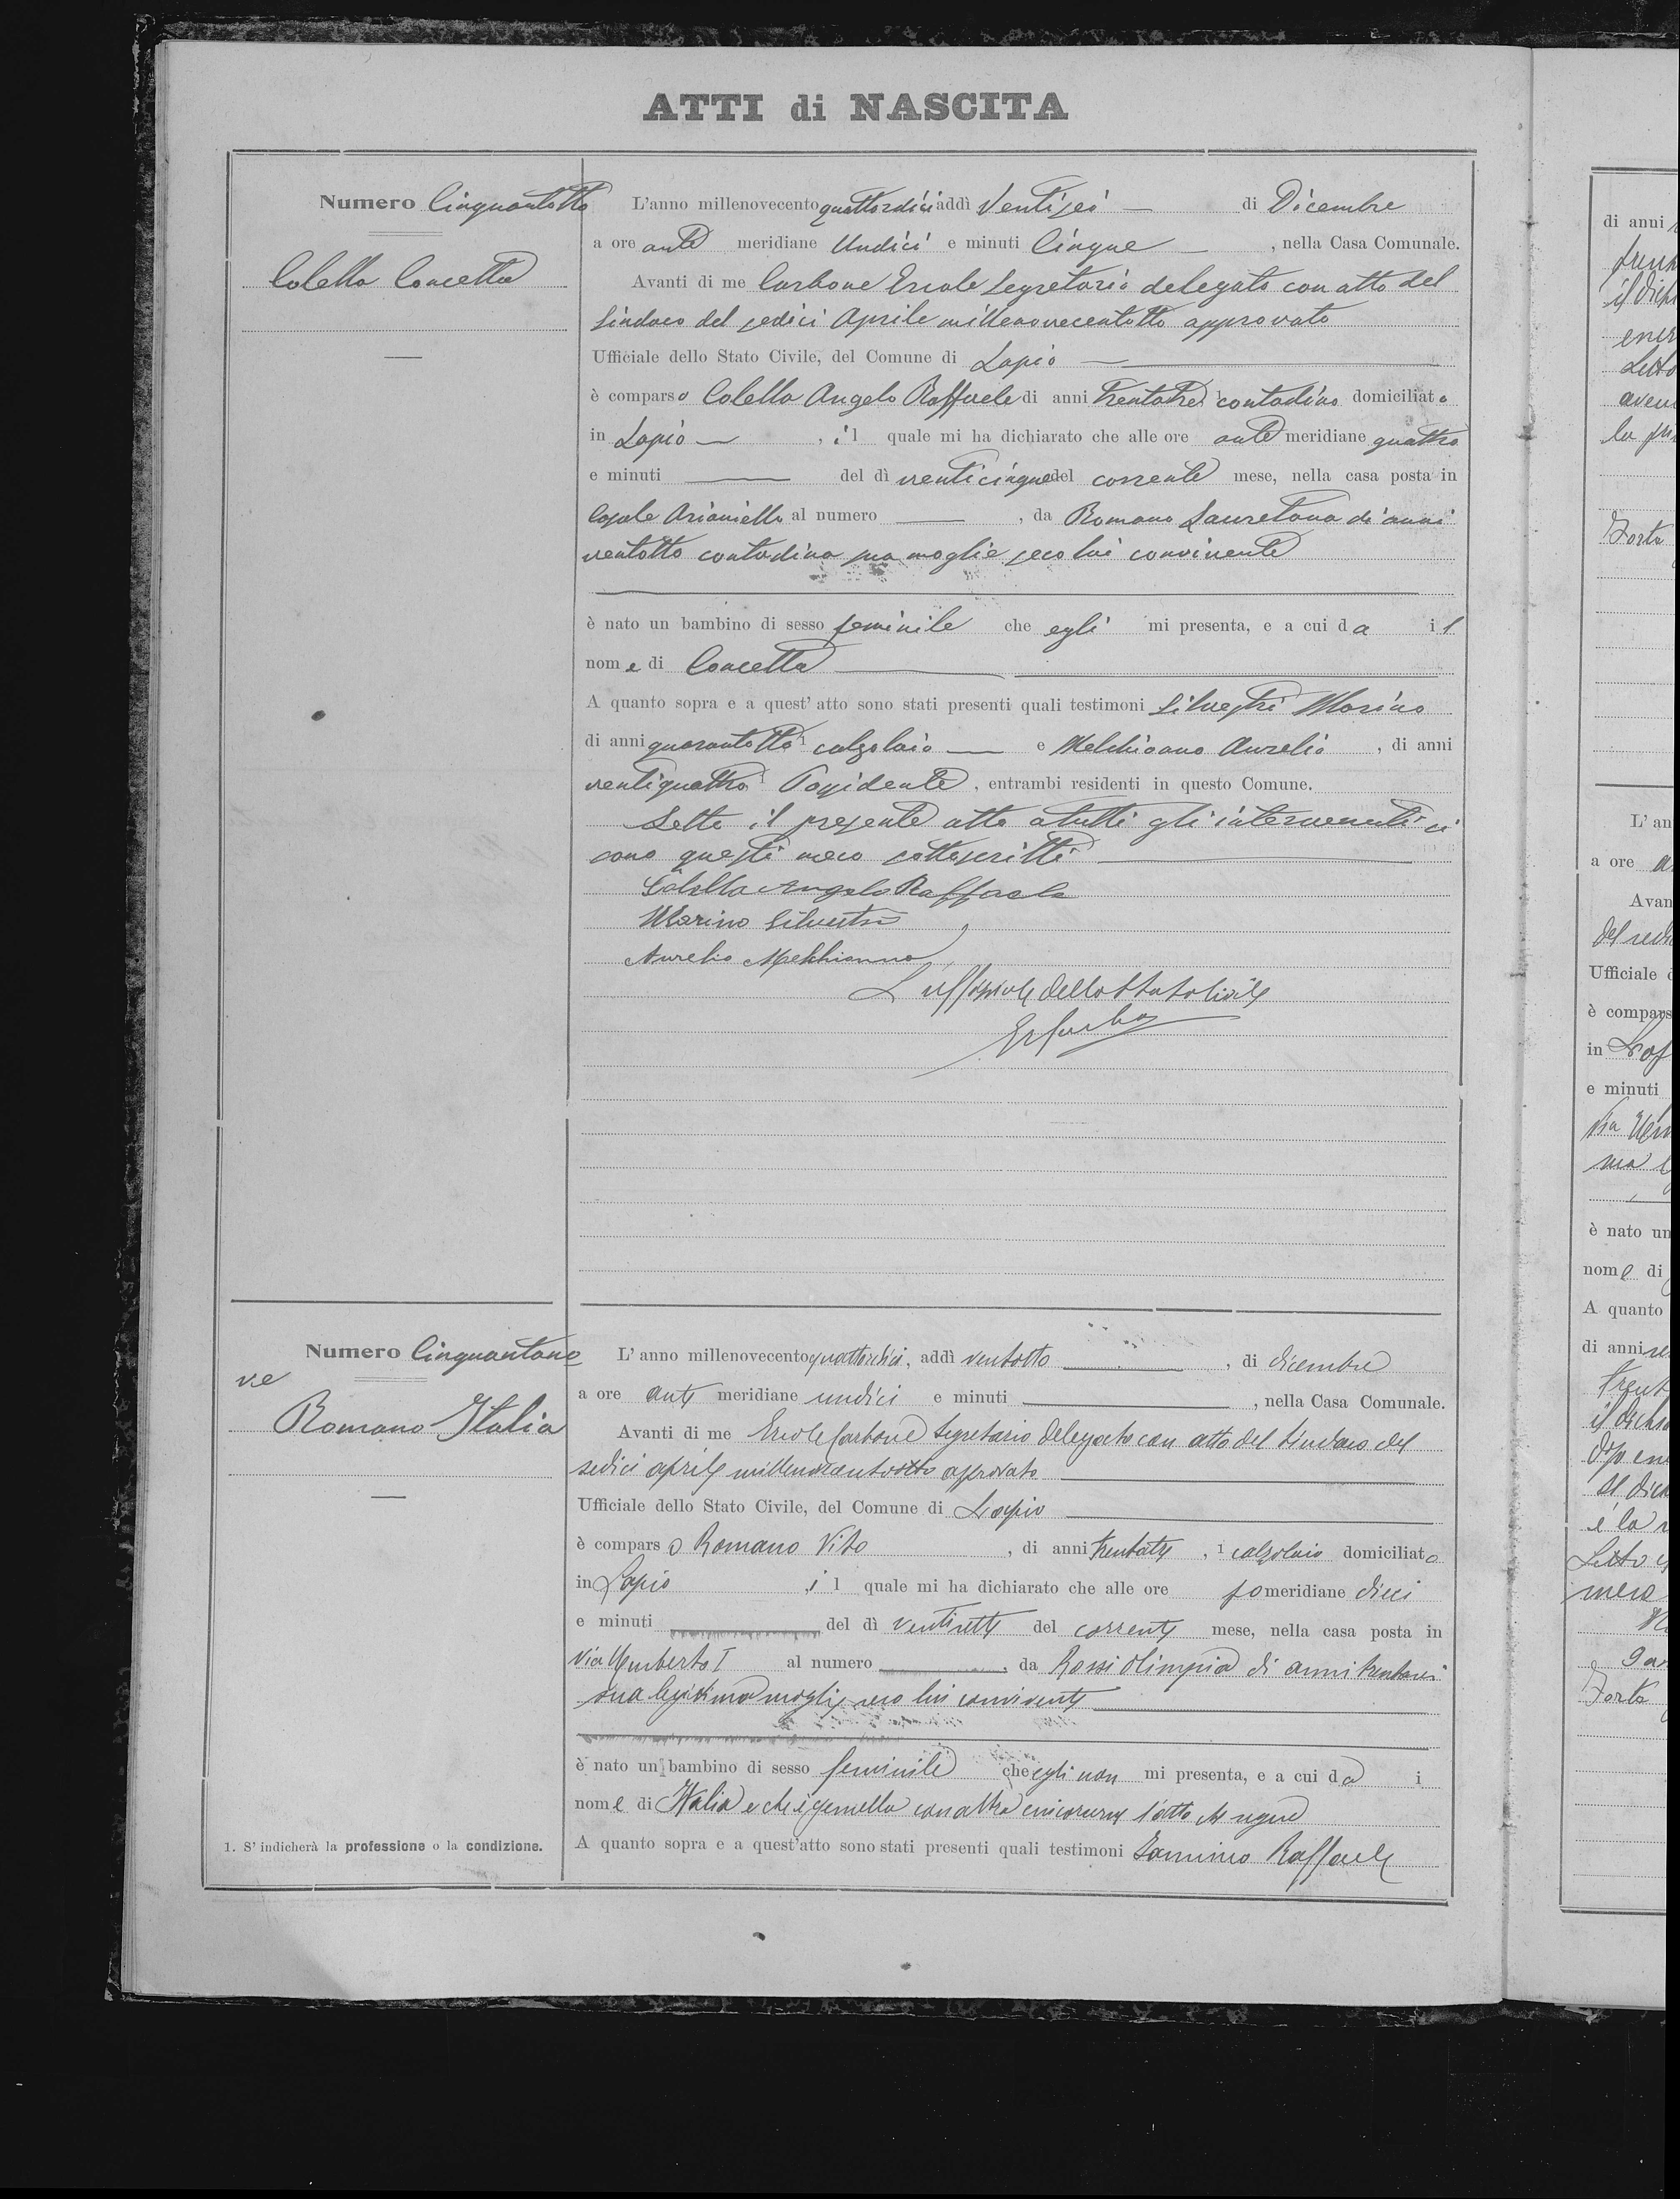 ATTI di NASCITA
Numero Cinquantotto
Colella Concetta
L'anno millenovecento quattordici addì Ventisei — di Dicembre
a ore ante meridiane Undici e minuti Cinque — , nella Casa Comunale.
Avanti di me Carbone Ercole Segretario delegato con atto del
Sindaco del sedici Aprile millenovecentotto approvato
Ufficiale dello Stato Civile, del Comune di Lapio —
è comparso Colella Angelo Raffaele di anni trentatre contadino domiciliato
in Lapio — , il quale mi ha dichiarato che alle ore ante meridiane quattro
e minuti — del dì venticinque del corrente mese, nella casa posta in
Casale Arianiello al numero — , da Romano Lauretana di anni
ventotto contadina sua moglie seco lui convivente
è nato un bambino di sesso feminile che egli mi presenta, e a cui da il
nome di Concetta —
A quanto sopra e a quest' atto sono stati presenti quali testimoni Silvestri Marino
di anni quarantotto calzolaio — e Melchionno Aurelio , di anni
ventiquattro Possidente , entrambi residenti in questo Comune.
Letto il presente atto a tutti gli intervenuti si
sono questi meco sottoscritti —
Colella Angelo Raffaele
Marino Silvestri
Aurelio Melchionno
L'uffiziale dello Stato Civile
Numero Cinquantano
ve
Romano Italia
L' anno millenovecento quattordici, addì ventotto — , di dicembre
a ore ante meridiane undici e minuti — , nella Casa Comunale.
Avanti di me Ercole Carbone Segretario delegato con atto del Sindaco del
sedici aprile millenovecentootto approvato —
Ufficiale dello Stato Civile, del Comune di Lapio —
è comparso Romano Vito , di anni trentatre , 1 calzolaio domiciliato
in Lapio , il quale mi ha dichiarato che alle ore pomeridiane dieci
e minuti — del dì ventisette del corrente mese, nella casa posta in
Via Umberto I al numero — , da Rossi Olimpia di anni trentasei
sua legittima moglie seco lui convivente —
è nato un bambino di sesso feminile che egli non mi presenta, e a cui da i
nome di Italia e che è gemella con altra cui l'atto che segue
A quanto sopra e a quest'atto sono stati presenti quali testimoni Iannino Raffaele
1. S' indicherà la professione o la condizione.
di anni
Letto
la
Forte
L' an
a ore
Avan
Ufficiale
è compars
in Lap
e minuti
Via Um
è nato un
nome di
A quanto
di anni
trent
è la
Letto
meco
Forte